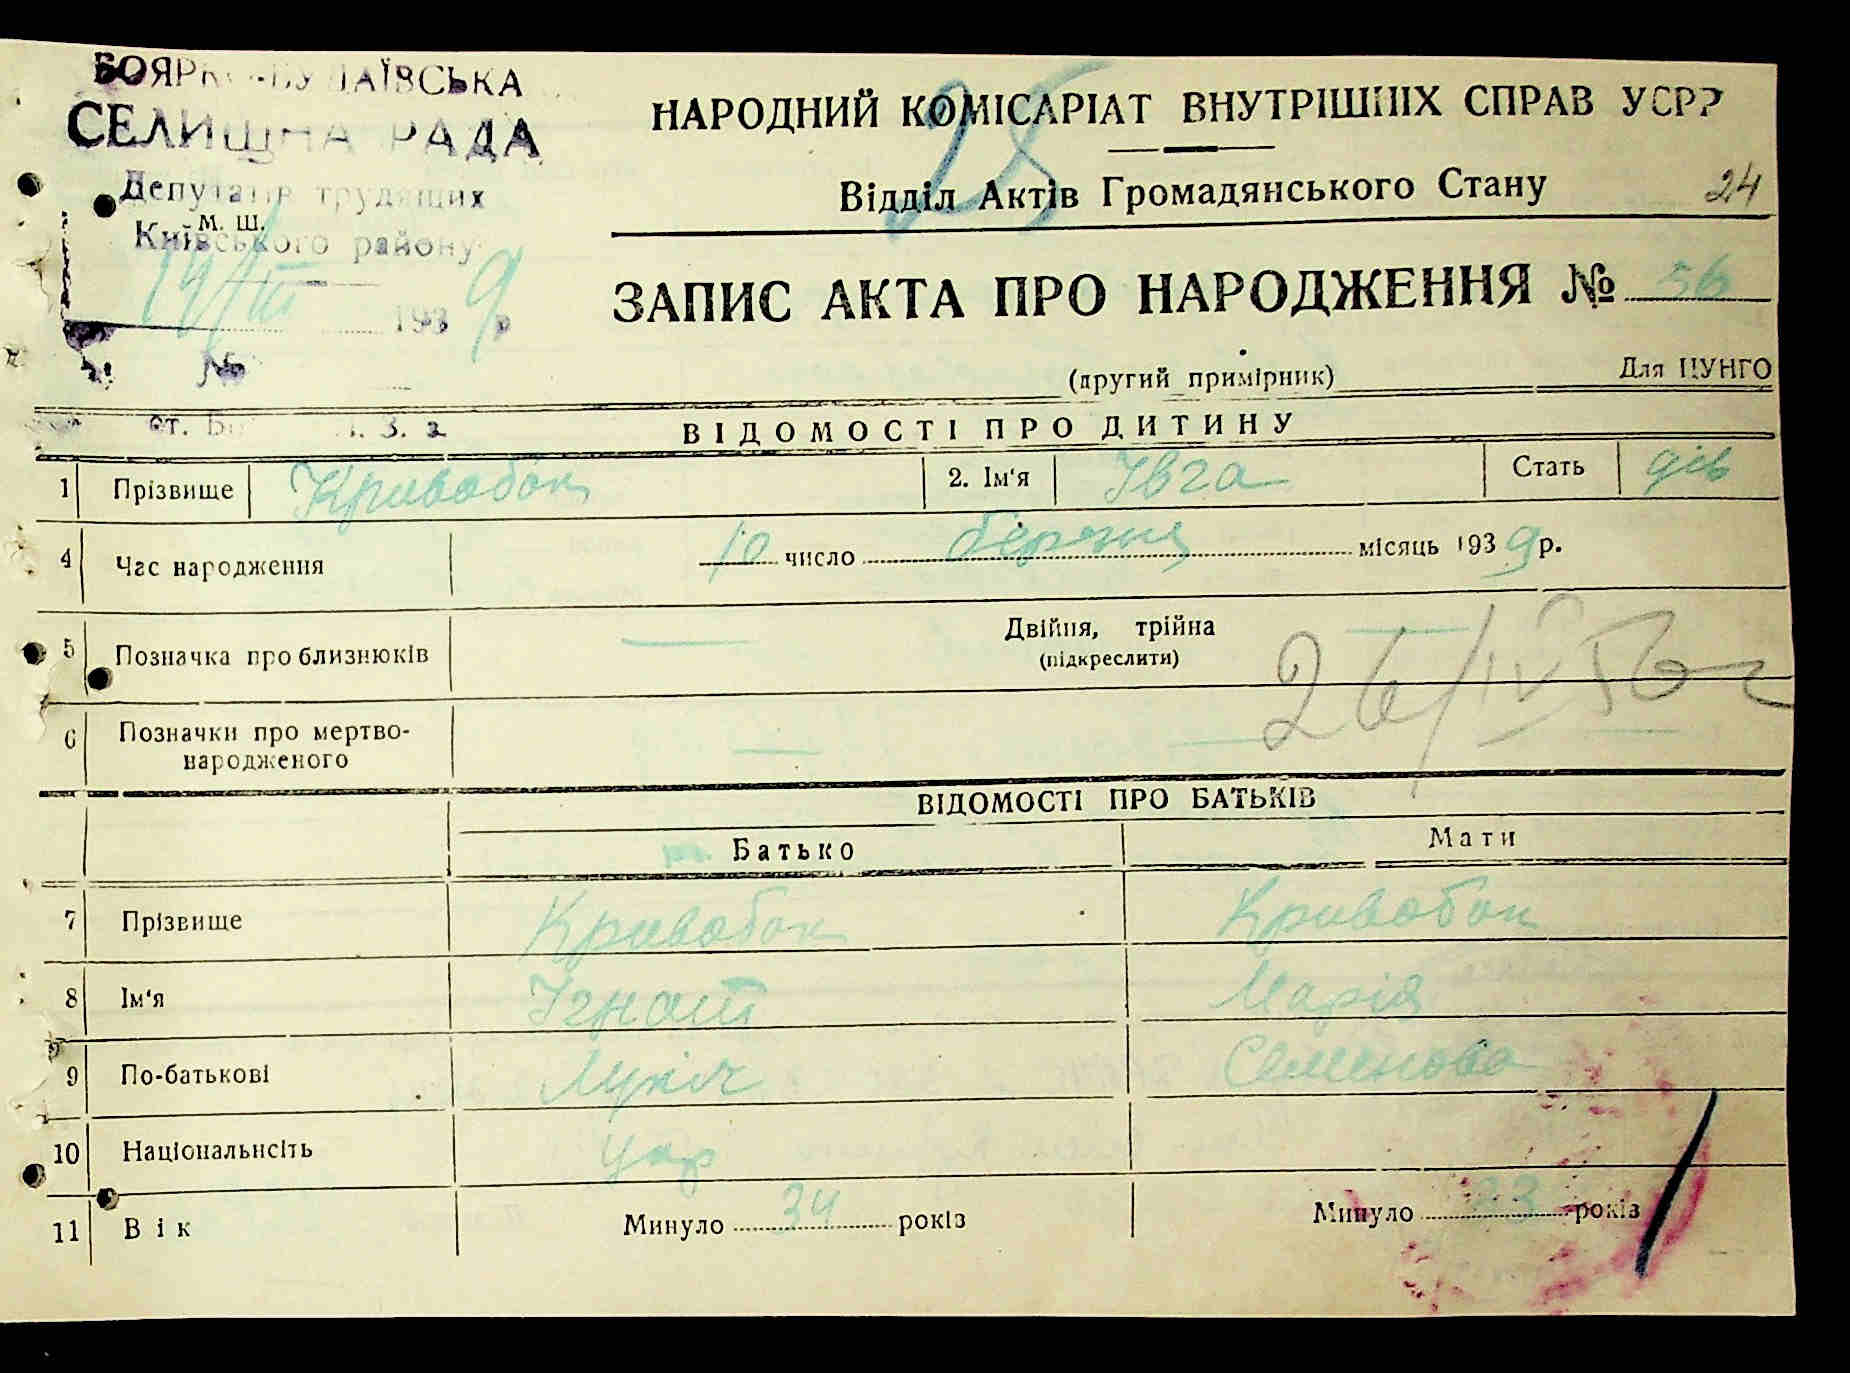 БОЯРКО-БУДАЇВСЬКА
СЕЛИЩНА РАДА
Депутатів трудящих
м. ш.
Київського району
14/III 1939 р
№
ст.
НАРОДНИЙ КОМІСАРІАТ ВНУТРІШНІХ СПРАВ УСРР
25
Відділ Актів Громадянського Стану
24
ЗАПИС АКТА ПРО НАРОДЖЕННЯ № 56
(другий примірник)
Для ЦУНГО
ВІДОМОСТІ ПРО ДИТИНУ
1 Прізвище Кривобок 2. Ім'я Ївга Стать дів
4 Час народження 10 число березня місяць 1939 р.
5 Позначка про близнюків — Двійня, трійна
(підкреслити)
26/IV 56 г
6 Позначки про мертво-
народженого —
ВІДОМОСТІ ПРО БАТЬКІВ
Батько Мати
7 Прізвище Кривобок Кривобок
8 Ім'я Ігнат Марія
9 По-батькові Лукіч Семенова
10 Національність Укр
11 Вік Минуло 34 років Минуло 33 років